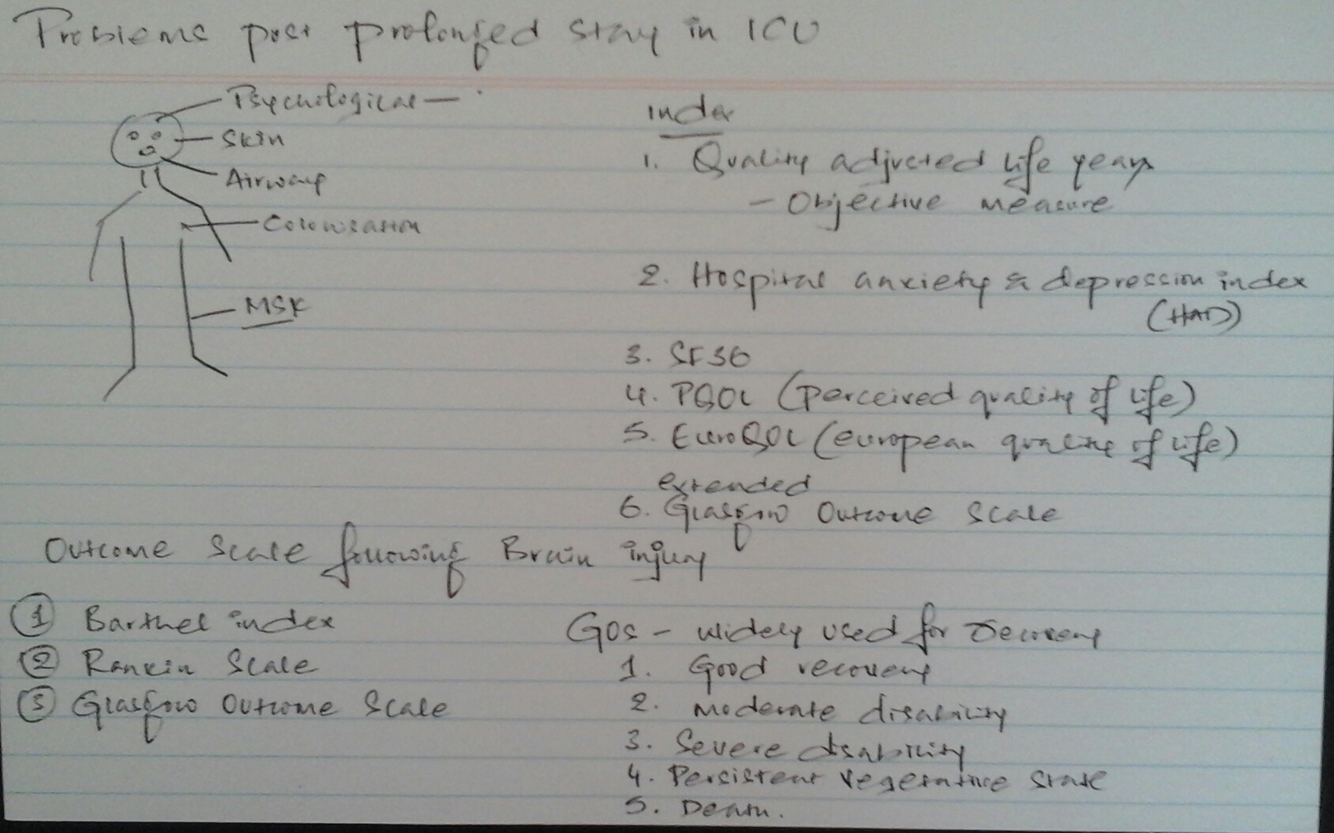 Problems post prolonged stay in ICU
Psychological —
Skin
Airway
Colonisation
MSK
index
1. Quality adjusted life years
- Objective measure
2. Hospital anxiety & depression index
(HAD)
3. SF36
4. PQOL (perceived quality of life)
5. EuroQOL (european quality of life)
extended
6. Glasgow Outcome Scale
Outcome Scale following Brain injury
① Barthel index
② Rankin Scale
③ Glasgow Outcome Scale
GOS - widely used for
1. Good recovery
2. Moderate disability
3. Severe disability
4. Persistent vegetative state
5. Death.